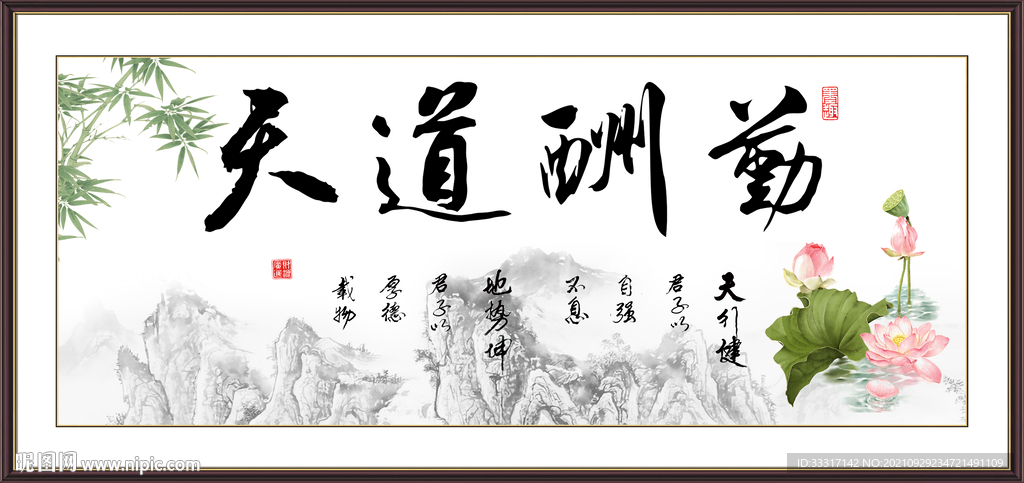 天道酬勤
天行健
君子以
自强
不息
地势坤
君子以
厚德
载物
昵图网 www.nipic.com
ID:33317142 NO:20210929234721491109